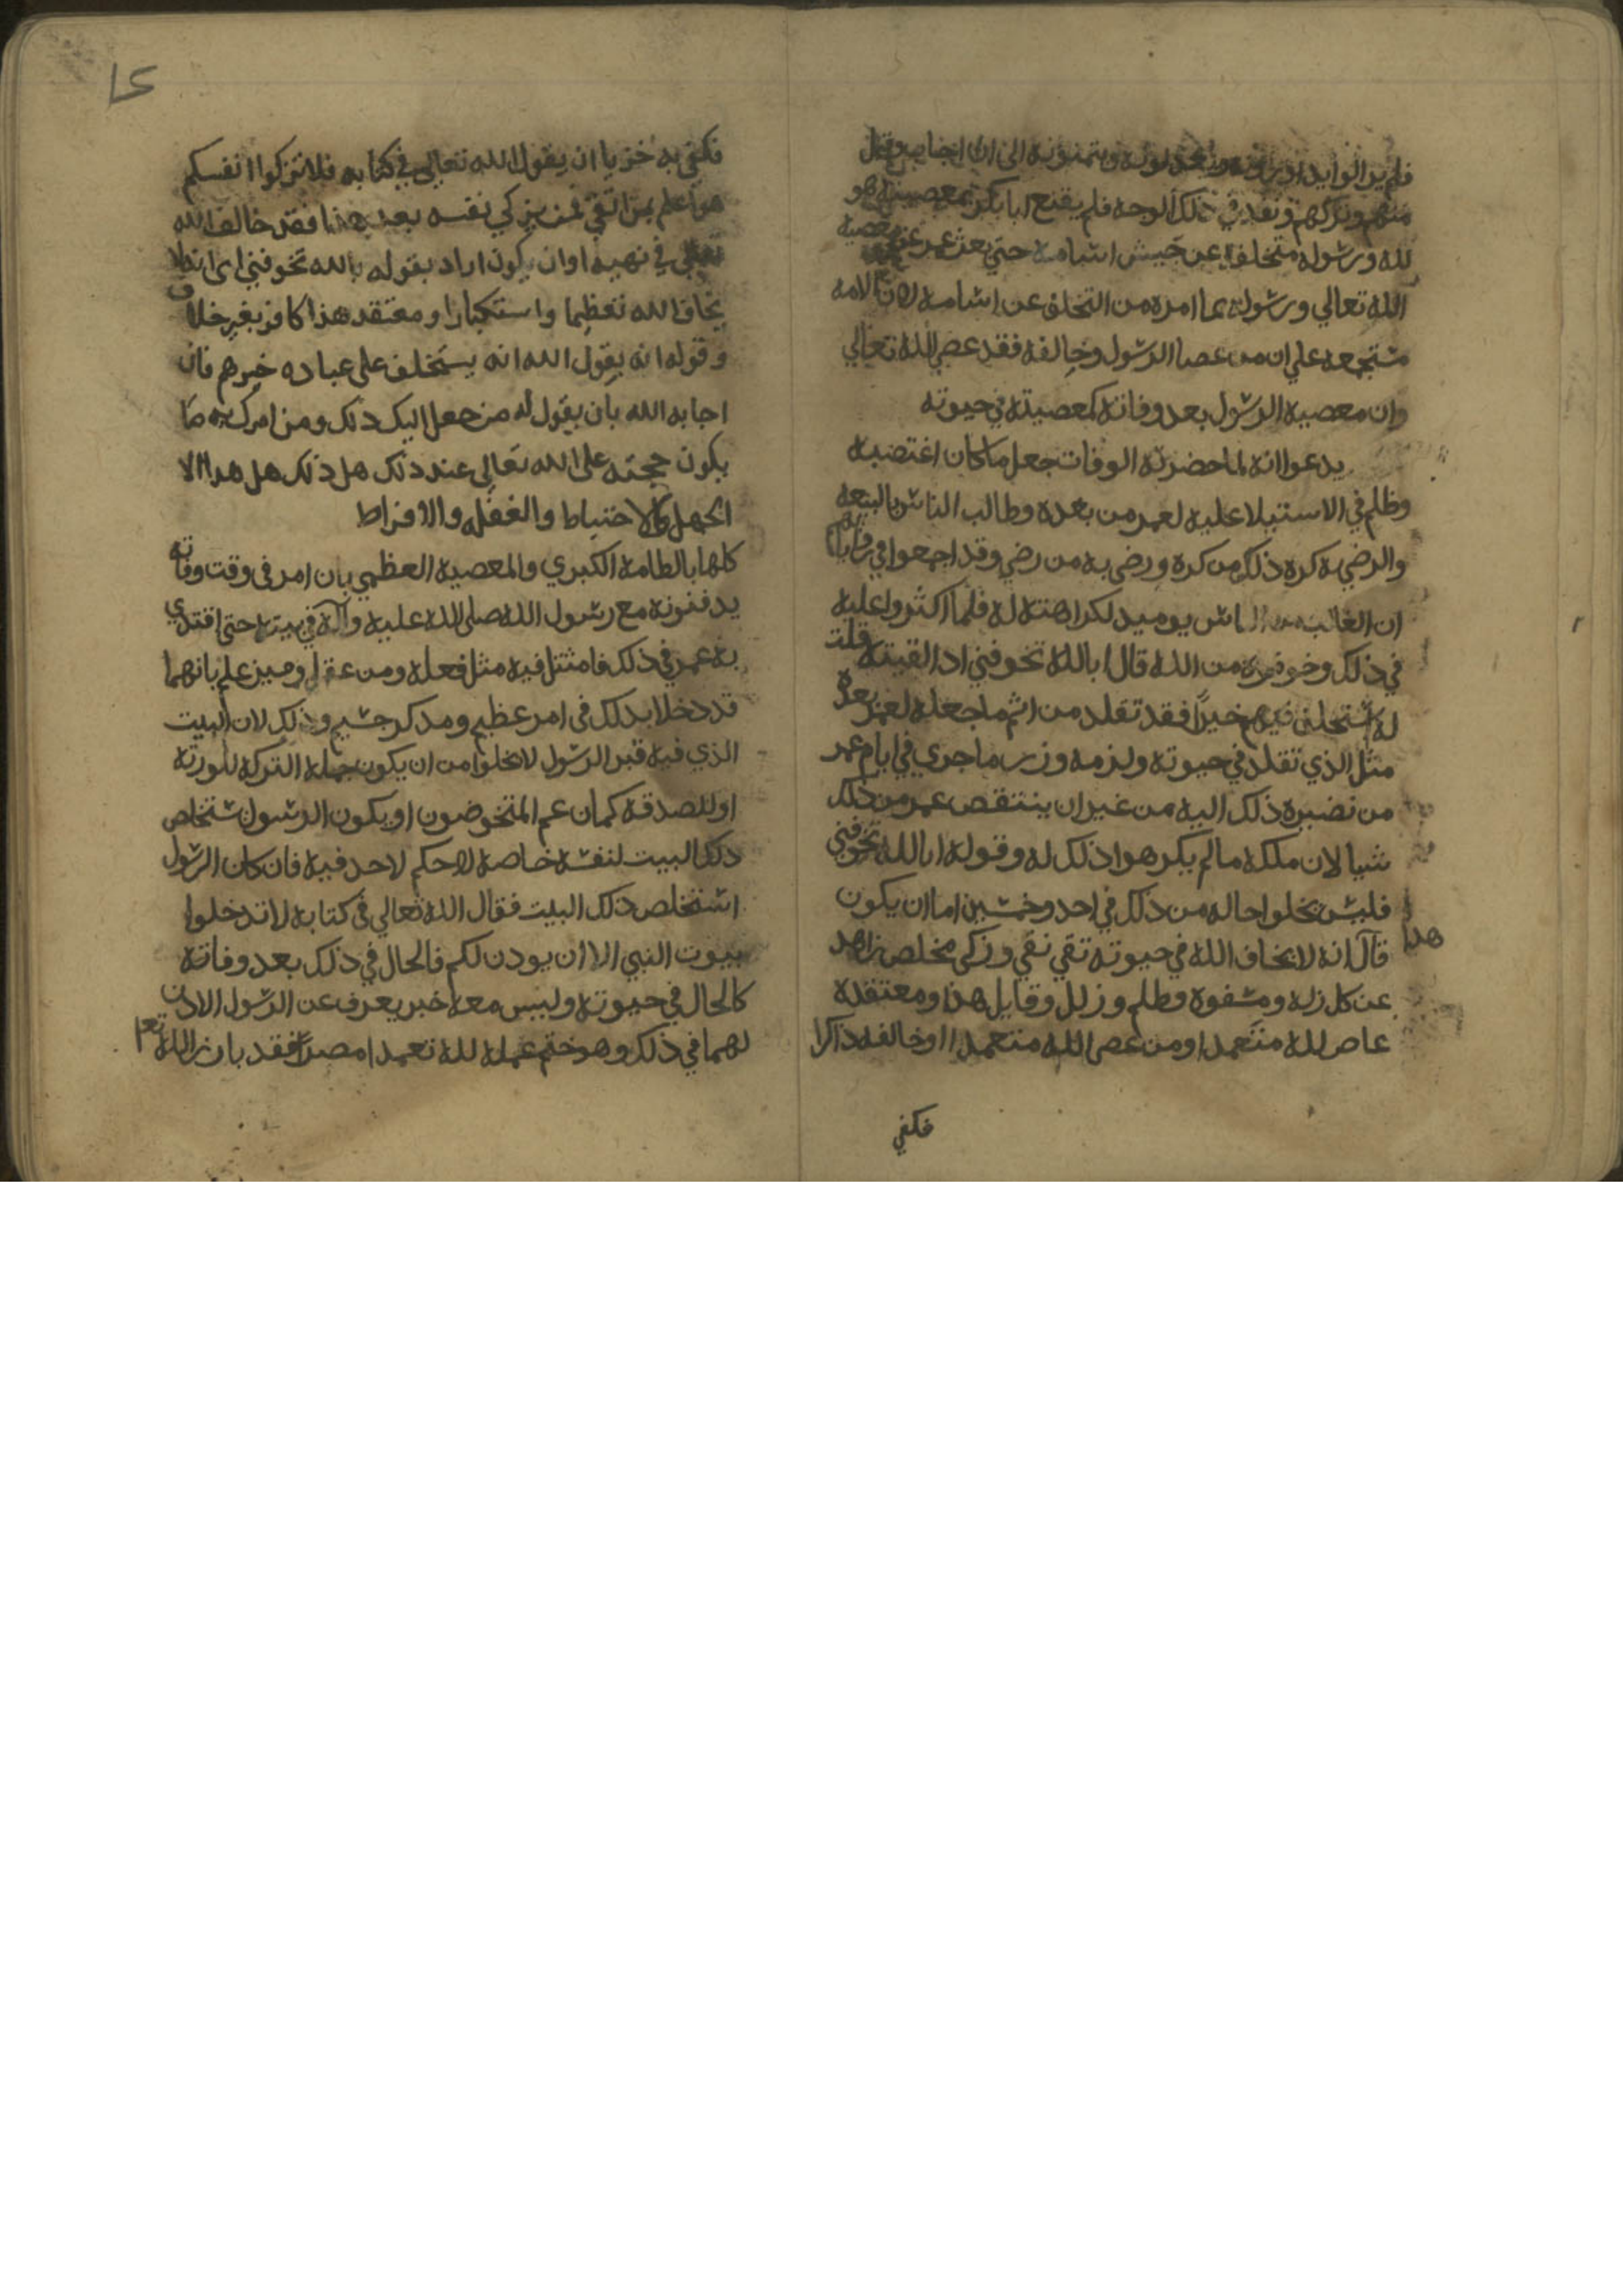 منهم وتركهم ونفد في ذلك الوجه فلم يقنع ابا بكر معصيته هو
لله ورسوله متخلفا عن جيش اسامه حتي بعث عمر معصية
الله تعالي ورسوله بما امره من التخلف عن اسامه لان الامه
مجتمعه علي ان من عصا الرسول وخالفه فقد عصي الله تعالي
وان معصيه الرسول بعد وفاته كمعصيته في حيوته
يدعوا انه لما حضرته الوفات جعل ما كان اغتصبه
وظلم في الاستيلا عليه لعمر من بعده وطالب الناس بالبيعه
والرضي به كره ذلك من كره ورضي به من رضي وقد اجمعوا في
ان الغالب من الناس يوميد لكراهته له فلما اكثروا عليه
في ذلك وخوفوه من الله قال ابالله تخوفني ادا القيته قلت
له استخلفت فيهم خيرا فقد تقلد من اثم ما جعله لعمر بعده
مثل الذي تقلد في حيوته ولزمه وزر ما جري في ايام عمر
من تصيره ذلك اليه من غير ان ينتقص عمر من ذلك
شيا لان ملكه ما لم يكن هوا ذلك له وقوله ابالله تخوفني
فليس تخلوا حاله من ذلك في احد وخمسين اما ان يكون
هدا
قال انه لا يخاف الله في حيوته تقي نقي وزكي مخلص زاهد
عن كل زله ومشفوه وظلم وزلل وقايل هذا ومعتقده
عاص لله متعمدا ومن عصي الله متعمدا او خالفه ذاكرا
فكفي
فكفي به خزيا ان يقول الله تعالي في كتابه فلا تزكوا انفسكم
هو اعلم بمن اتقي فمن يزكي نفسه بعد هذا فقد خالف الله
تعالي في نهيه او ان يكون اراد بقوله بالله تخوفني اي انه لا
يخاف الله تعظيما واستكبارا ومعتقد هذا كافر بغير خلاف
وقوله انه يقول الله انه يستخلف علي عباده خيرهم فان
اجابه الله بان يقول له من جعل اليك ذلك ومن امرك به ما
يكون حجته علي الله تعالي عند ذلك هل ذلك هل هدا الا
الجهل والاختباط والغفله والافراط
كلها بالطامه الكبري والمعصيه العظمي بان امر في وقت وفاته
يدفنونه مع رسول الله صلي الله عليه وآله في بيته حتي اقتدي
به عمر في ذلك فامتثل فيه مثل فعله ومن عقل وميز علم بانهما
قد دخلا بدلك في امر عظيم ومدكر جسيم وذلك لان البيت
الذي فيه قبر الرسول لا يخلوا من ان يكون جمله التركه للورثه
او للصدقه كما زعم المتخرضون او يكون الرسول استخلص
ذلك البيت لنفسه خاصه لا حكم لاحد فيه فان كان الرسول
استخلص ذلك البيت فقال الله تعالي في كتابه لا تدخلوا
بيوت النبي الا ان يودن لكم فالحال في ذلك بعد وفاته
كالحال في حيوته وليس معه خبر يعرف عن الرسول الادن
لهما في ذلك وهو ختم عمله لله تعمدا مصرا فقد بارز الله تعا